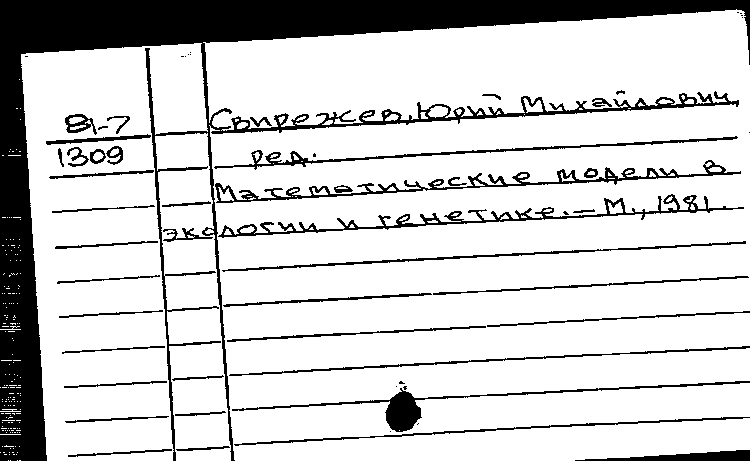 81-7
1309
Свирежев, Юрий Михайлович,
ред.
Математические модели в
экологии и генетике. — М., 1981.